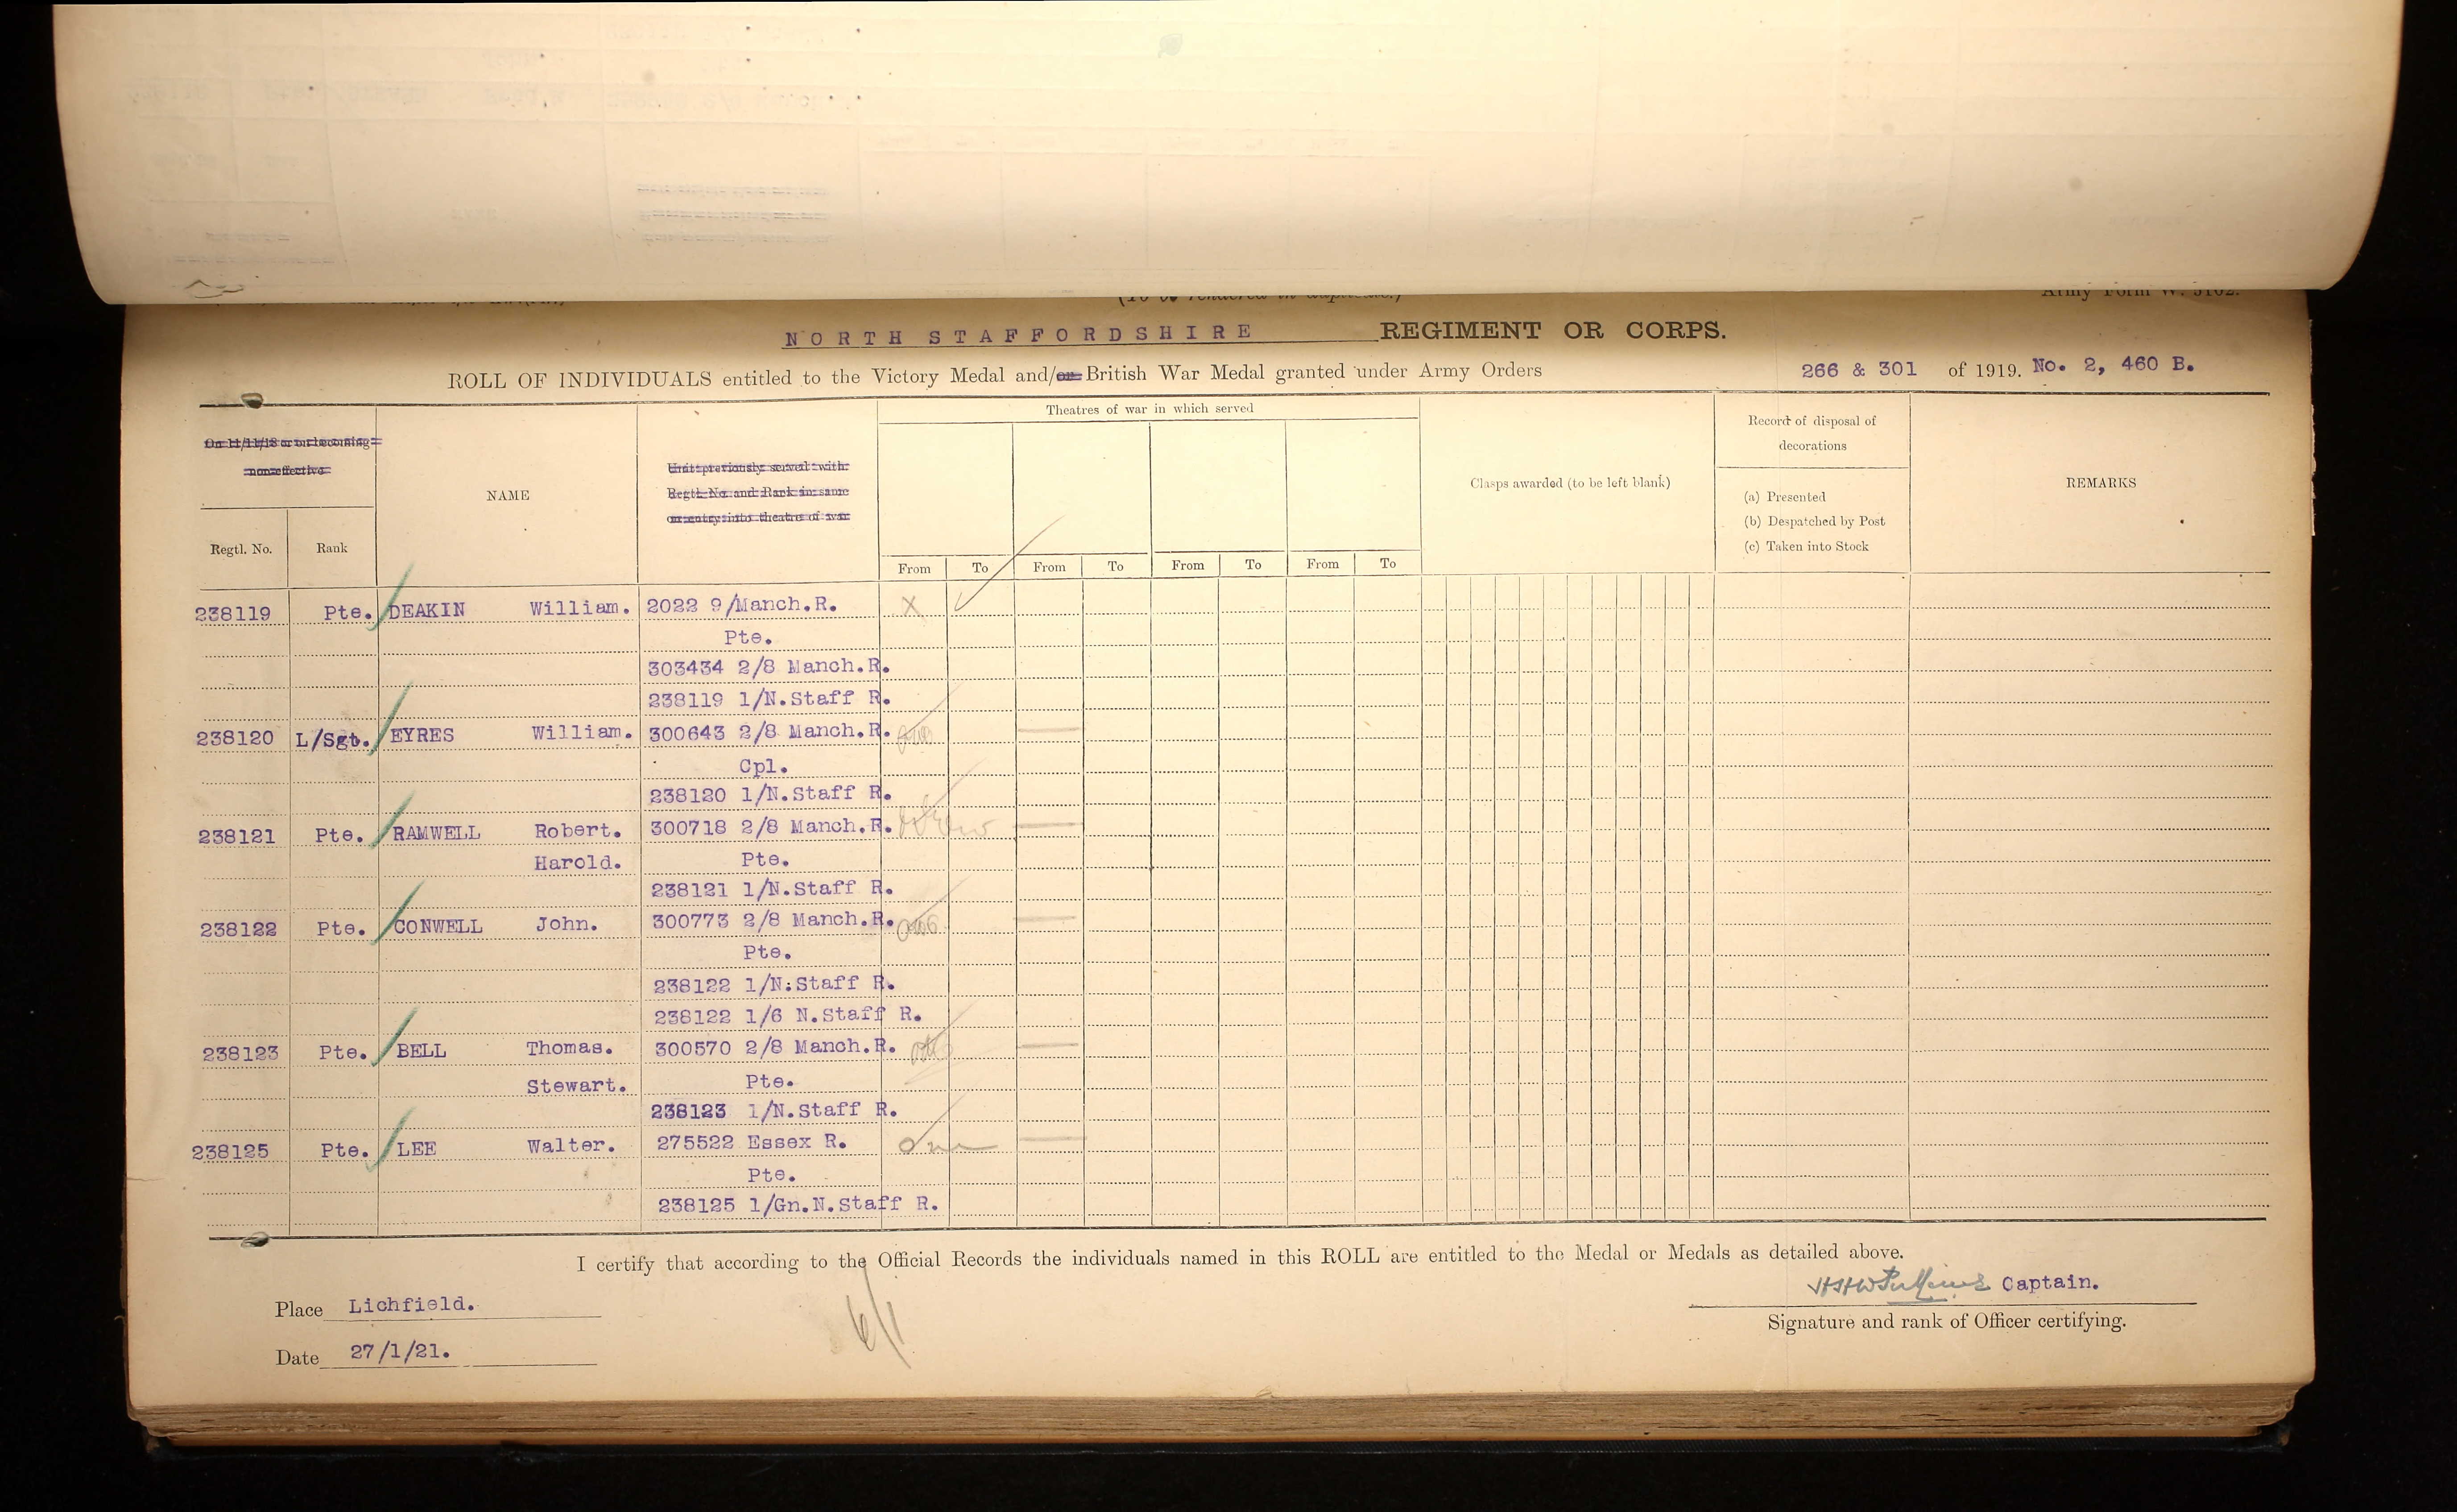 NORTH STAFFORDSHIRE REGIMENT OR CORPS.
ROLL OF INDIVIDUALS entitled to the Victory Medal and/or British War Medal granted under Army Orders 266 & 301 of 1919. No. 2, 460 B.
Theatres of war in which served
On 11/11/18 or on becoming
non-effective
Regtl. No.
Rank
NAME
Unit previously served with.
Regtl. No. and Rank in same
on entry into theatre of war
From To From To From To From To
Clasps awarded (to be left blank)
Record of disposal of
decorations
(a) Presented
(b) Despatched by Post
(c) Taken into Stock
REMARKS
238119 Pte. DEAKIN William. 2022 9/Manch.R. X
Pte.
303434 2/8 Manch.R.
238119 1/N.Staff R.
238120 L/Sgt. EYRES William. 300643 2/8 Manch.R.
Cpl.
238120 1/N.Staff R.
238121 Pte. RAMWELL Robert. 300718 2/8 Manch.R.
Harold. Pte.
238121 1/N.Staff R.
238122 Pte. CONWELL John. 300773 2/8 Manch.R.
Pte.
238122 1/N.Staff R.
238122 1/6 N.Staff R.
238123 Pte. BELL Thomas. 300570 2/8 Manch.R.
Stewart. Pte.
238123 1/N.Staff R.
238125 Pte. LEE Walter. 275522 Essex R.
Pte.
238125 1/Gn.N.Staff R.
I certify that according to the Official Records the individuals named in this ROLL are entitled to the Medal or Medals as detailed above.
Captain.
Place Lichfield.
Signature and rank of Officer certifying.
Date 27/1/21.
6/1